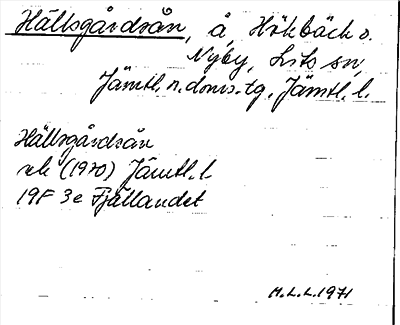 Hällsgårdsån, å, Hökbäck o.
Nyby, Lits sn,
Jämtl. n. doms. tg, Jämtl. l.
Hällsgårdsån
rk (1970) Jämtl. l.
19F 3e Fjällandet
M.L.L. 1971